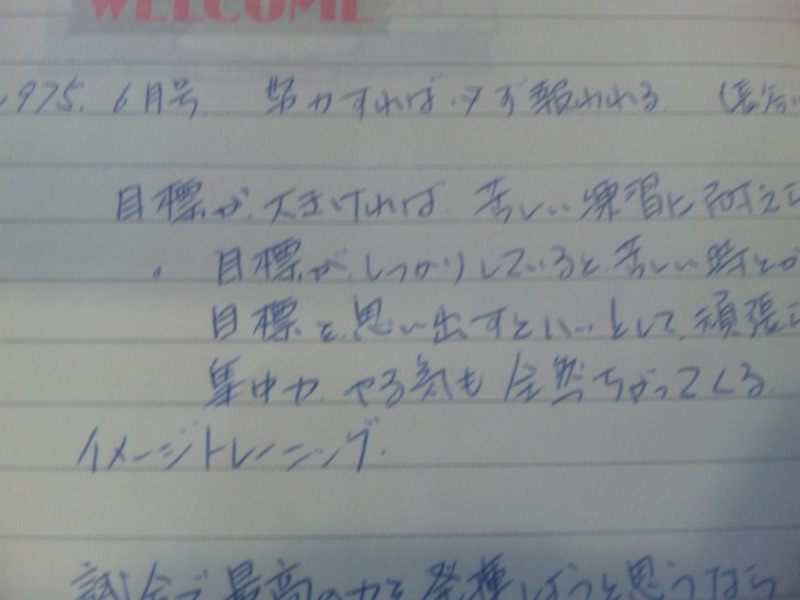 WELCOME
975. 6月号 努力すれば必ず報われる (長谷
目標が大きければ苦しい練習に耐えら
・目標がしっかりしていると、苦しい時とか
目標を思い出すといって、頑張
集中力、やる気も全然ちがってくる。
イメージトレーニング.
試合で最高の力を発揮しようと思うなら